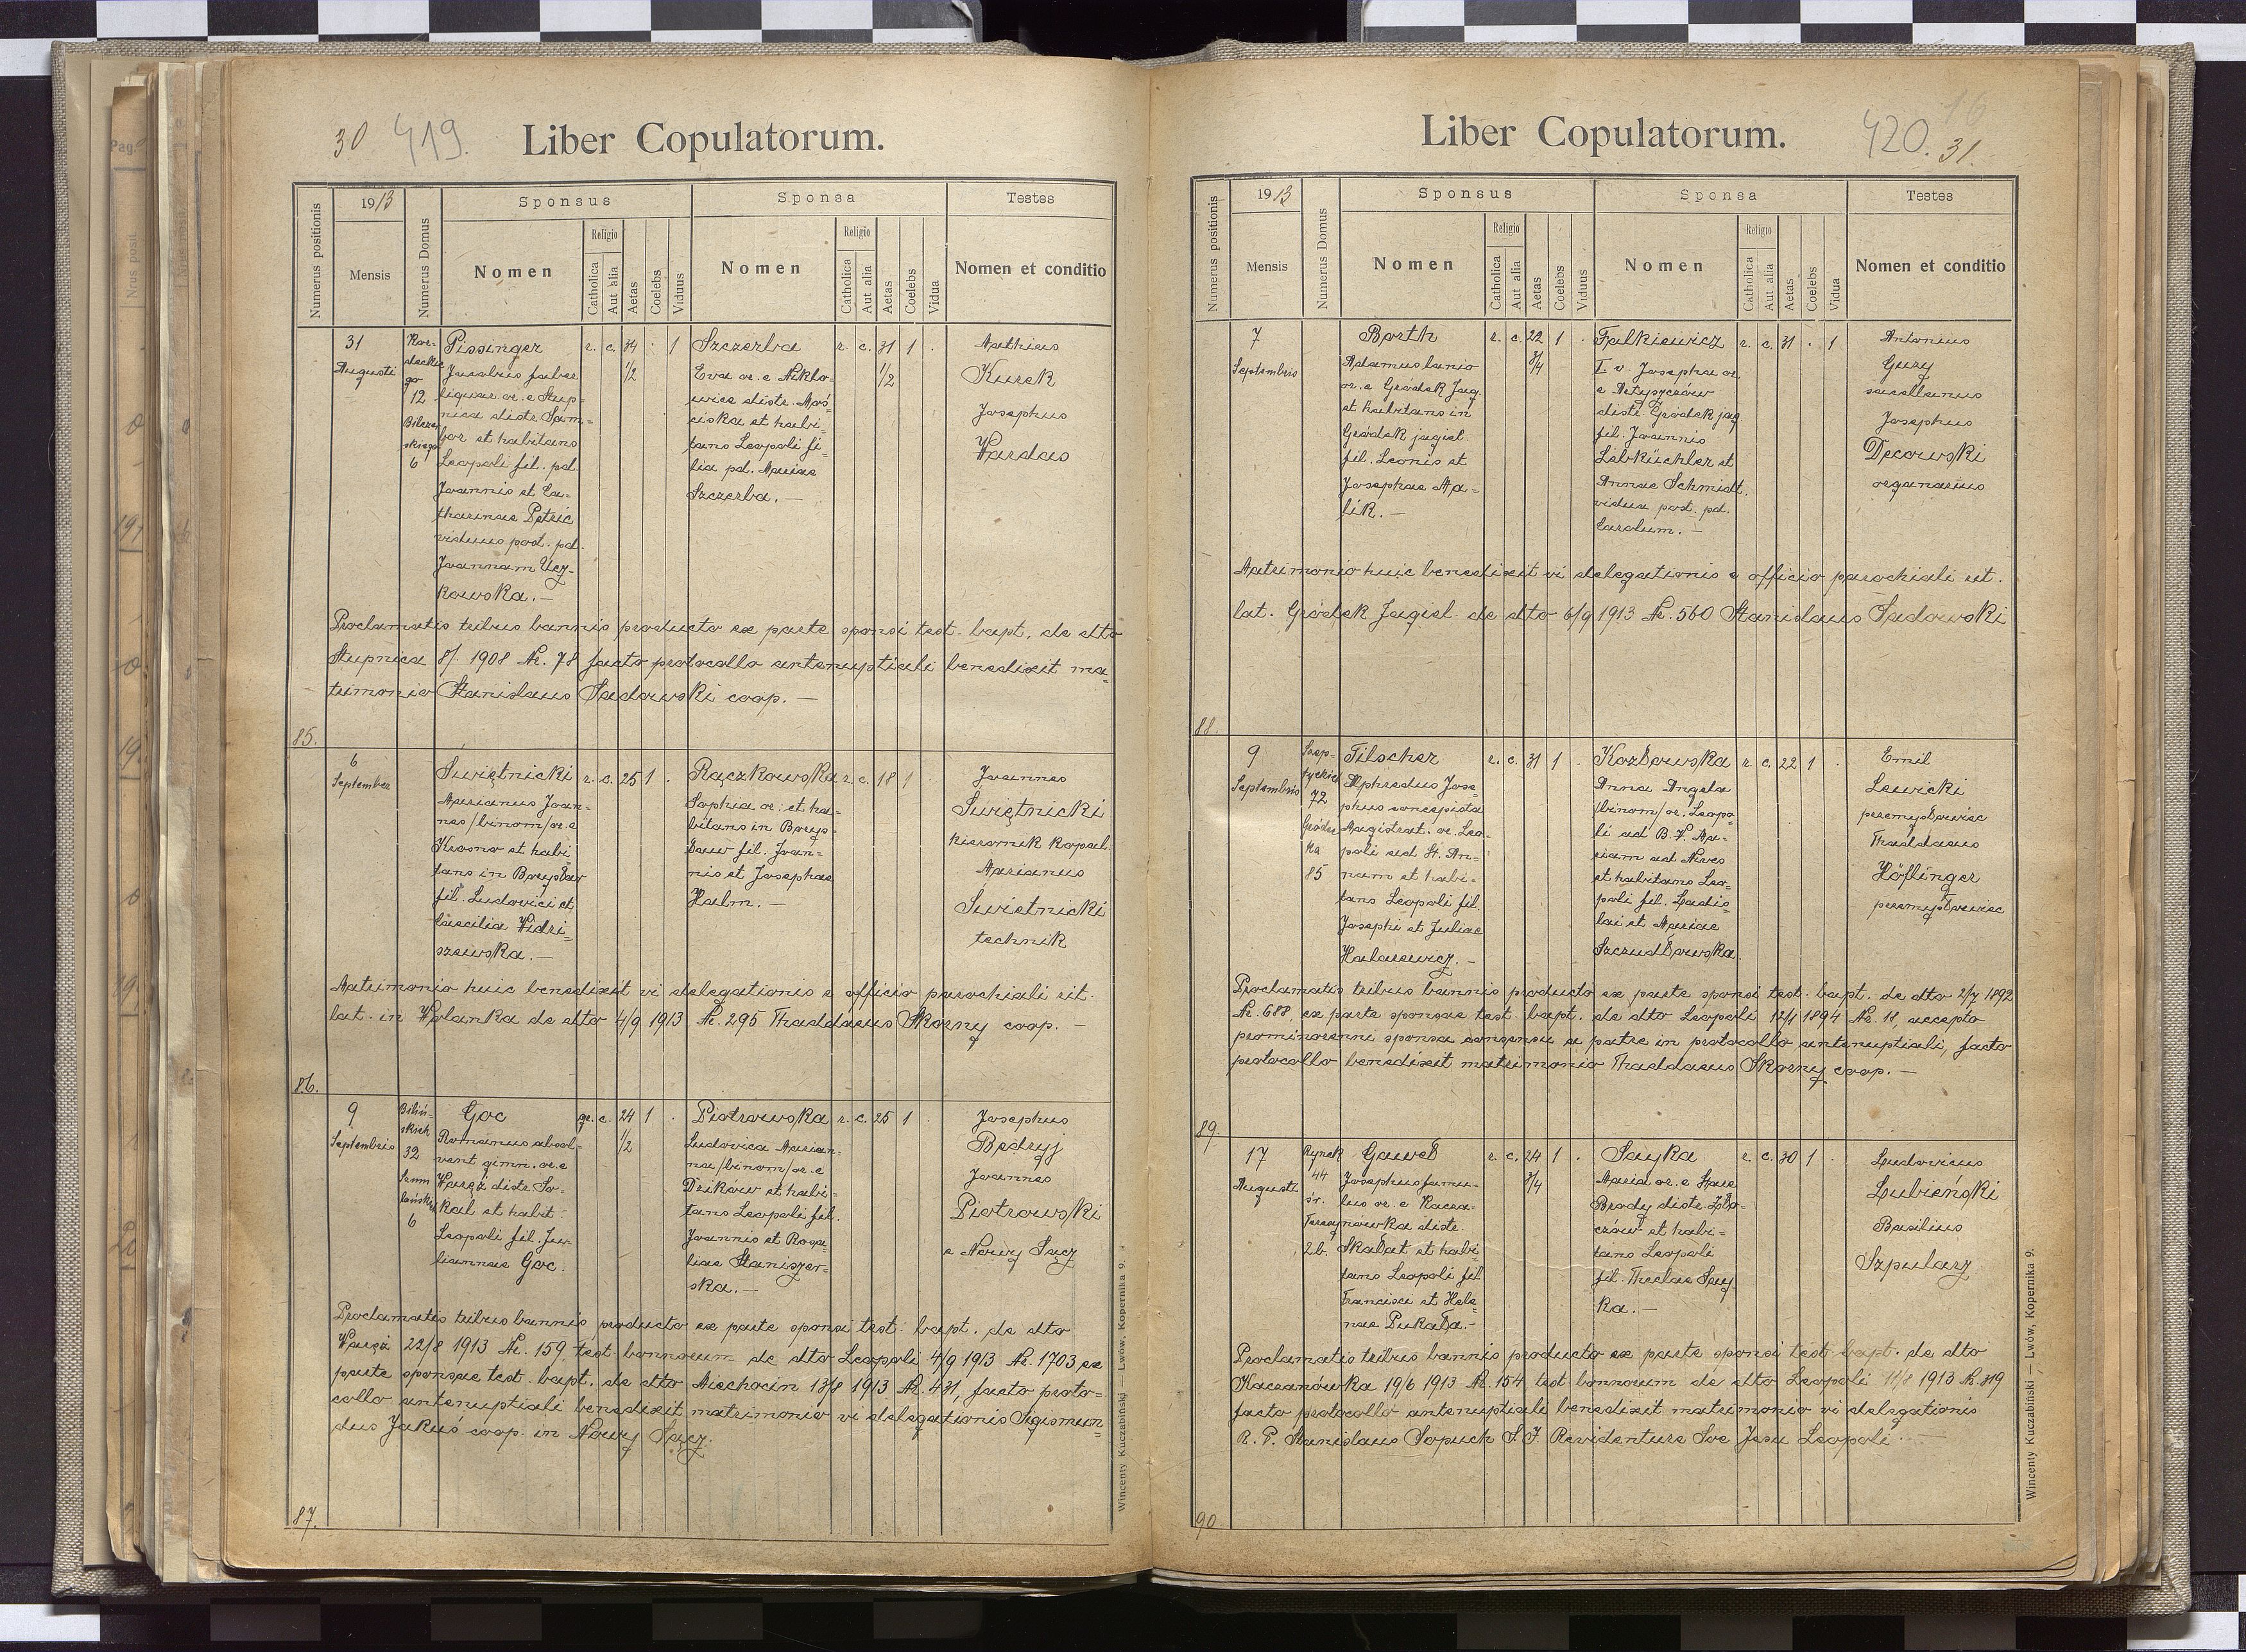 30 419.
Liber Copulatorum.
Numerus positionis
1913
Mensis
Numerus Domus
Sponsus
Nomen
Religio
Catholica
Aut alia
Aetas
Coelebs
Viduus
Sponsa
Nomen
Religio
Catholica
Aut alia
Aetas
Coelebs
Vidua
Testes
Nomen et conditio
85.
31
Augusti
12
Bilczew
skiego
6
Pissinger
Jacobus faber
liquar. or. e Stup=
nica distr. Sam=
bor et habitans
Leopoli fil. pd.
Joannis et Ca=
tharinae Petric
viduus post. pd.
Joannam Ucz-
kowska. –
r. c. 34 1/2 . 1
Szczerba
Eva or. e Nikło=
wice distr. Moś=
ciska et habi=
tans Leopoli fi=
lia pd. Mariae
Szczerba. –
r. c. 31 1/2 1 .
Mathias
Kurek
Josephus
Wardas
Proclamatis tribus bannis producto ex parte sponsi test. bapt. de dto
Stupnica 8/. 1908 Nr. 78 facto protocollo antenuptiali benedixit ma=
trimonio Stanislaus Sadowski coop. –
86.
6
September
Świętnicki
Marianus Joan=
nes /binom/ or. e
Krosno et habi
tans in Borysław
fil. Ludovici et
Caecilia Widri=
szewska. –
r. c. 25 1 .
Rączkowska
Sophia or. et ha=
bitans in Borys=
ław fil. Joan=
nis et Josephae
Halm. –
r. c. 18 1 .
Joannes
Świętnicki
kierownik kopal.
Marianus
Świetnicki
technik
Matrimonio huic benedixit vi delegationis e officio parochiali rit.
lat. in Wolanka de dto 4/9 1913 Nr. 295 Thaddaeus Skorny coop. –
87.
9
Septembris
Biliń=
skich
32
6
Goc
Romanus absol=
vent gimn. or. e
Waręż distr. So=
kal et habit.
Leopoli fil. Ju=
liannae Goc.
gr. c. 24 1/2 1 .
Piotrowska
Ludovica Marian=
na /binom/ or. e
Dzików et habi=
tans Leopoli fil.
Joannis et Rosa=
liae Staniszew=
ska. –
r. c. 25 1 .
Josephus
Bedryj
Joannes
Piotrowski
e Nowy Sącz
Proclamatis tribus bannis producto ex parte sponsi test. bapt. de dto
Waręż 22/8 1913 Nr. 159, test. bonnorum de dto Leopoli 4/9 1913 Nr. 1703, ex
parte sponsae test. bapt. de dto Miechocin 13/8 1913 Nr. 431, facto proto=
collo antenuptiali benedixit matrimonio vi delegationis Sigismun=
dus Jakuś coop. in Nowy Sącz.
Wincenty Kuczabiński — Lwów, Kopernika 9.
420. 16
31.
Liber Copulatorum.
Numerus positionis
1913
Mensis
Numerus Domus
Sponsus
Nomen
Religio
Catholica
Aut alia
Aetas
Coelebs
Viduus
Sponsa
Nomen
Religio
Catholica
Aut alia
Aetas
Coelebs
Vidua
Testes
Nomen et conditio
88.
7
Septembris
Barth
Adamus lanio
or. e Gródek Jag.
et habitans in
Gródek jagiel.
fil. Leonis et
Josephae Ma=
lik. –
r. c. 22 3/4 1 .
Falkiewicz
I. v. Josepha or.
distr. Gródek jag
fil. Joannis
Lebküchler et
Annae Schmidt.
vidua post. pd.
Carolum. –
r. c. 31 . 1
Antonius
Guzy
sacellanus
Josephus
Decowski
organarius
Matrimonio huic benedixit vi delegationis e officio parochiali rit.
lat. Gródek Jagiel. de dto 6/9 1913 Nr. 560 Stanislaus Sadowski
89.
9
Septembris
Szep=
tyckich
72
Gródec
ka
85
Tilscher
Alphredus Jose=
phus concepista
Magistrat. or. Leo=
poli ad St. An=
nam et habi=
tans Leopoli fil.
Josephi et Juliae
Halarewicz. –
r. c. 31 1 .
Kozłowska
Anna Angela
/binom/ or. Leopo
li ad B. V. Ma=
riam ad Nives
et habitans Leo=
poli fil. Ladis=
lai et Mariae
Szczudłowska.
r. c. 22 1 .
Emil
Lewicki
przemysłowiec
Thaddaeus
Höflinger
przemysłowiec
Proclamatis tribus bannis producto ex parte sponsi test. bapt. de dto 2/7 1892
Nr. 688, ex parte sponsae test. bapt. de dto Leopoli 12/1 1894 Nr. 18, accepto
prominorenni sponsa consensu a patre in protocollo antenuptiali, facto
protocollo benedixit matrimonio Thaddaeus Skorny coop. –
90
17
Augusti
Rynek
44
św.
Teresy
2b.
Gaweł
Josephus famu=
lus or. e Kacza=
nówka distr.
Skałat et habi=
tans Leopoli fil
Francisci et Hele=
nae Pukała. –
r. c. 24 3/4 1 .
Sayka
Maria or. e Stare
Brody distr. Zło=
czów et habi=
tans Leopoli
fil. Theclae Say
ka. –
r. c. 30 1 .
Ludovicus
Lubieński
Basilius
Szpularz
Proclamatis tribus bannis producto ex parte sponsi test. bapt. de dto
Kaczanówka 19/6 1913 Nr. 154, test bonnorum de dto Leopoli 11/8 1913 Nr 319
facto protocollo antenuptiali benedixit matrimonio vi delegationis
R. P. Stanislaus Sopuch S. J. Residenturae Soc Jesu Leopoli. –
Wincenty Kuczabiński — Lwów, Kopernika 9.